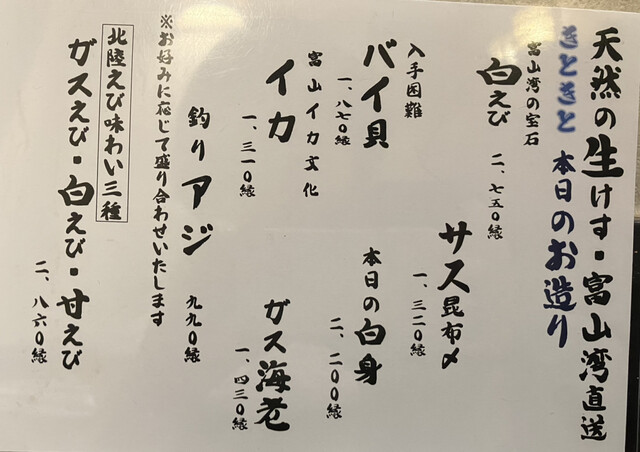 天然の生けす・富山湾直送
きときと 本日のお造り
富山湾の宝石
白えび
二、七五〇縁
サス昆布〆
一、三二〇縁
入手困難
バイ貝
一、八七〇縁
本日の白身
二、二〇〇縁
富山イカ文化
イカ
一、三一〇縁
ガス海老
一、四三〇縁
釣りアジ
九九〇縁
※お好みに応じて盛り合わせいたします
北陸えび味わい三種
ガスえび・白えび・甘えび
二、八六〇縁